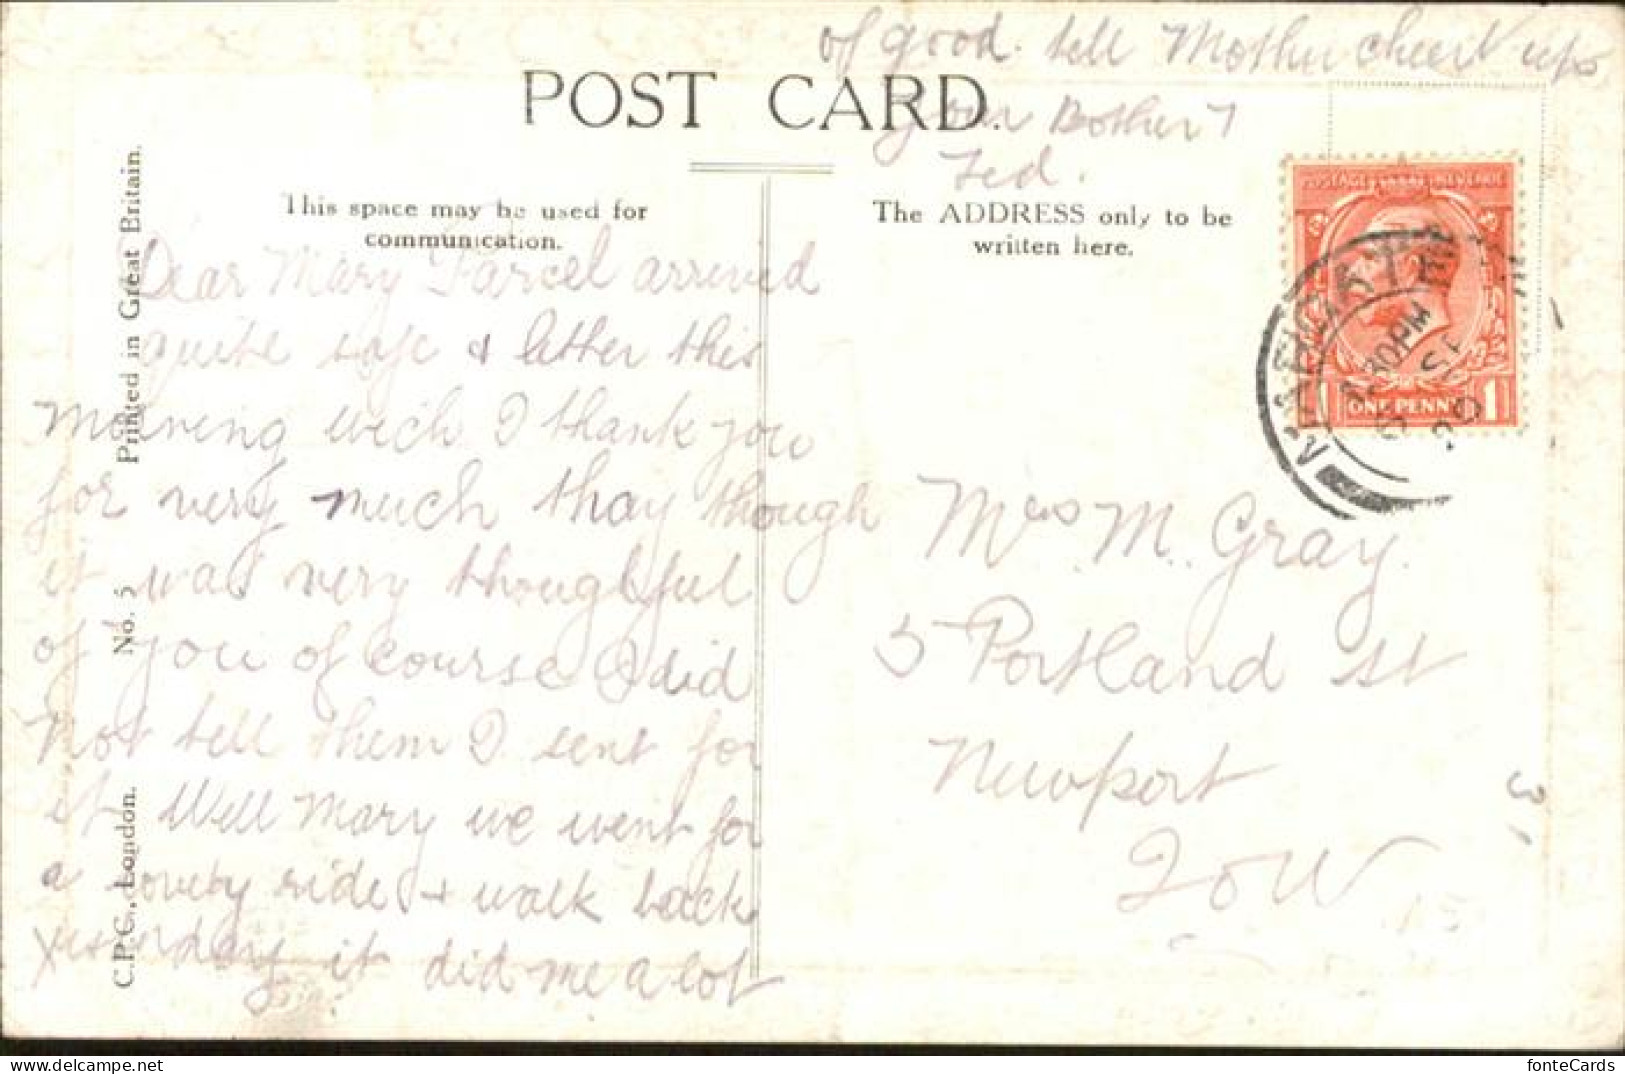 of good. tell Mother cheer up
POST CARD.
your Bother
Ted.
This space may be used for
communication.
The ADDRESS only to be
written here.
Dear Mary Parcel arrived
quite safe & letter this
morning wich I thank you
for very much thay though
it was very thoughtful
of you of course I did
not tell them I sent for
it Well Mary we went for
a lovely ride + walk back
yesterday it did me a lot
Mrs M. Gray.
5 Portland St
Newport
I O W
3
POSTAGE REVENUE
ONE PENNY
1 1
MARGATE
12.30 PM
20
Printed in Great Britain.
No. 5
C.P.C., London.
fonteCards
delcampe.net